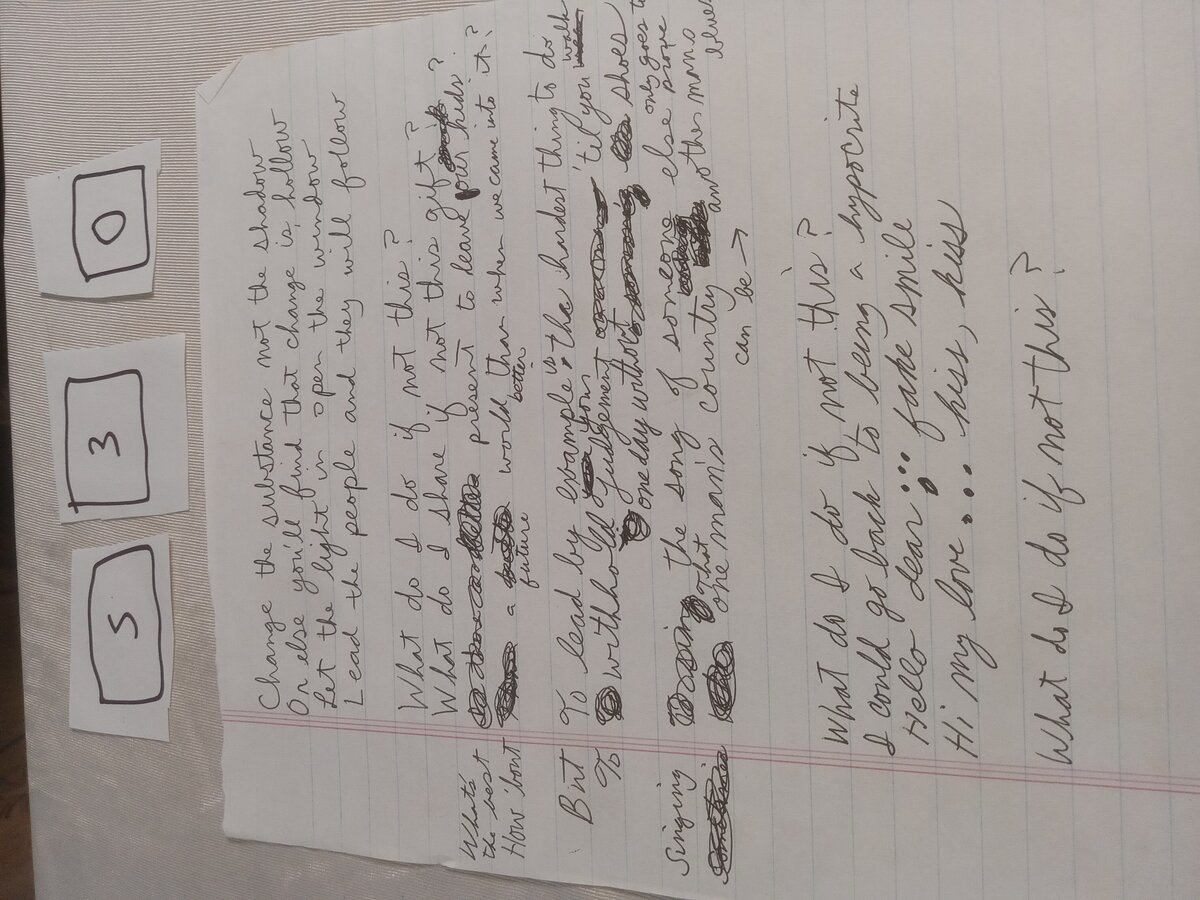 5 3 0
Change the substance not the shadow
Or else you'll find that change is hollow
Let the light in open the window
Lead the people and they will follow
What do I do if not this?
What do I share if not this gift?
What's the best present to leave our kids?
How 'bout a future world better than when we came into it?
But To lead by example is the hardest thing to do
To withhold your judgement 'til you walk
one day without shoes
Singing the song of someone else only goes to prove
what one man's country can be another mans blues
What do I do if not this?
I could go back to being a hypocrite
Hello dear... fake smile
Hi my love... kiss, kiss
What do I do if not this?